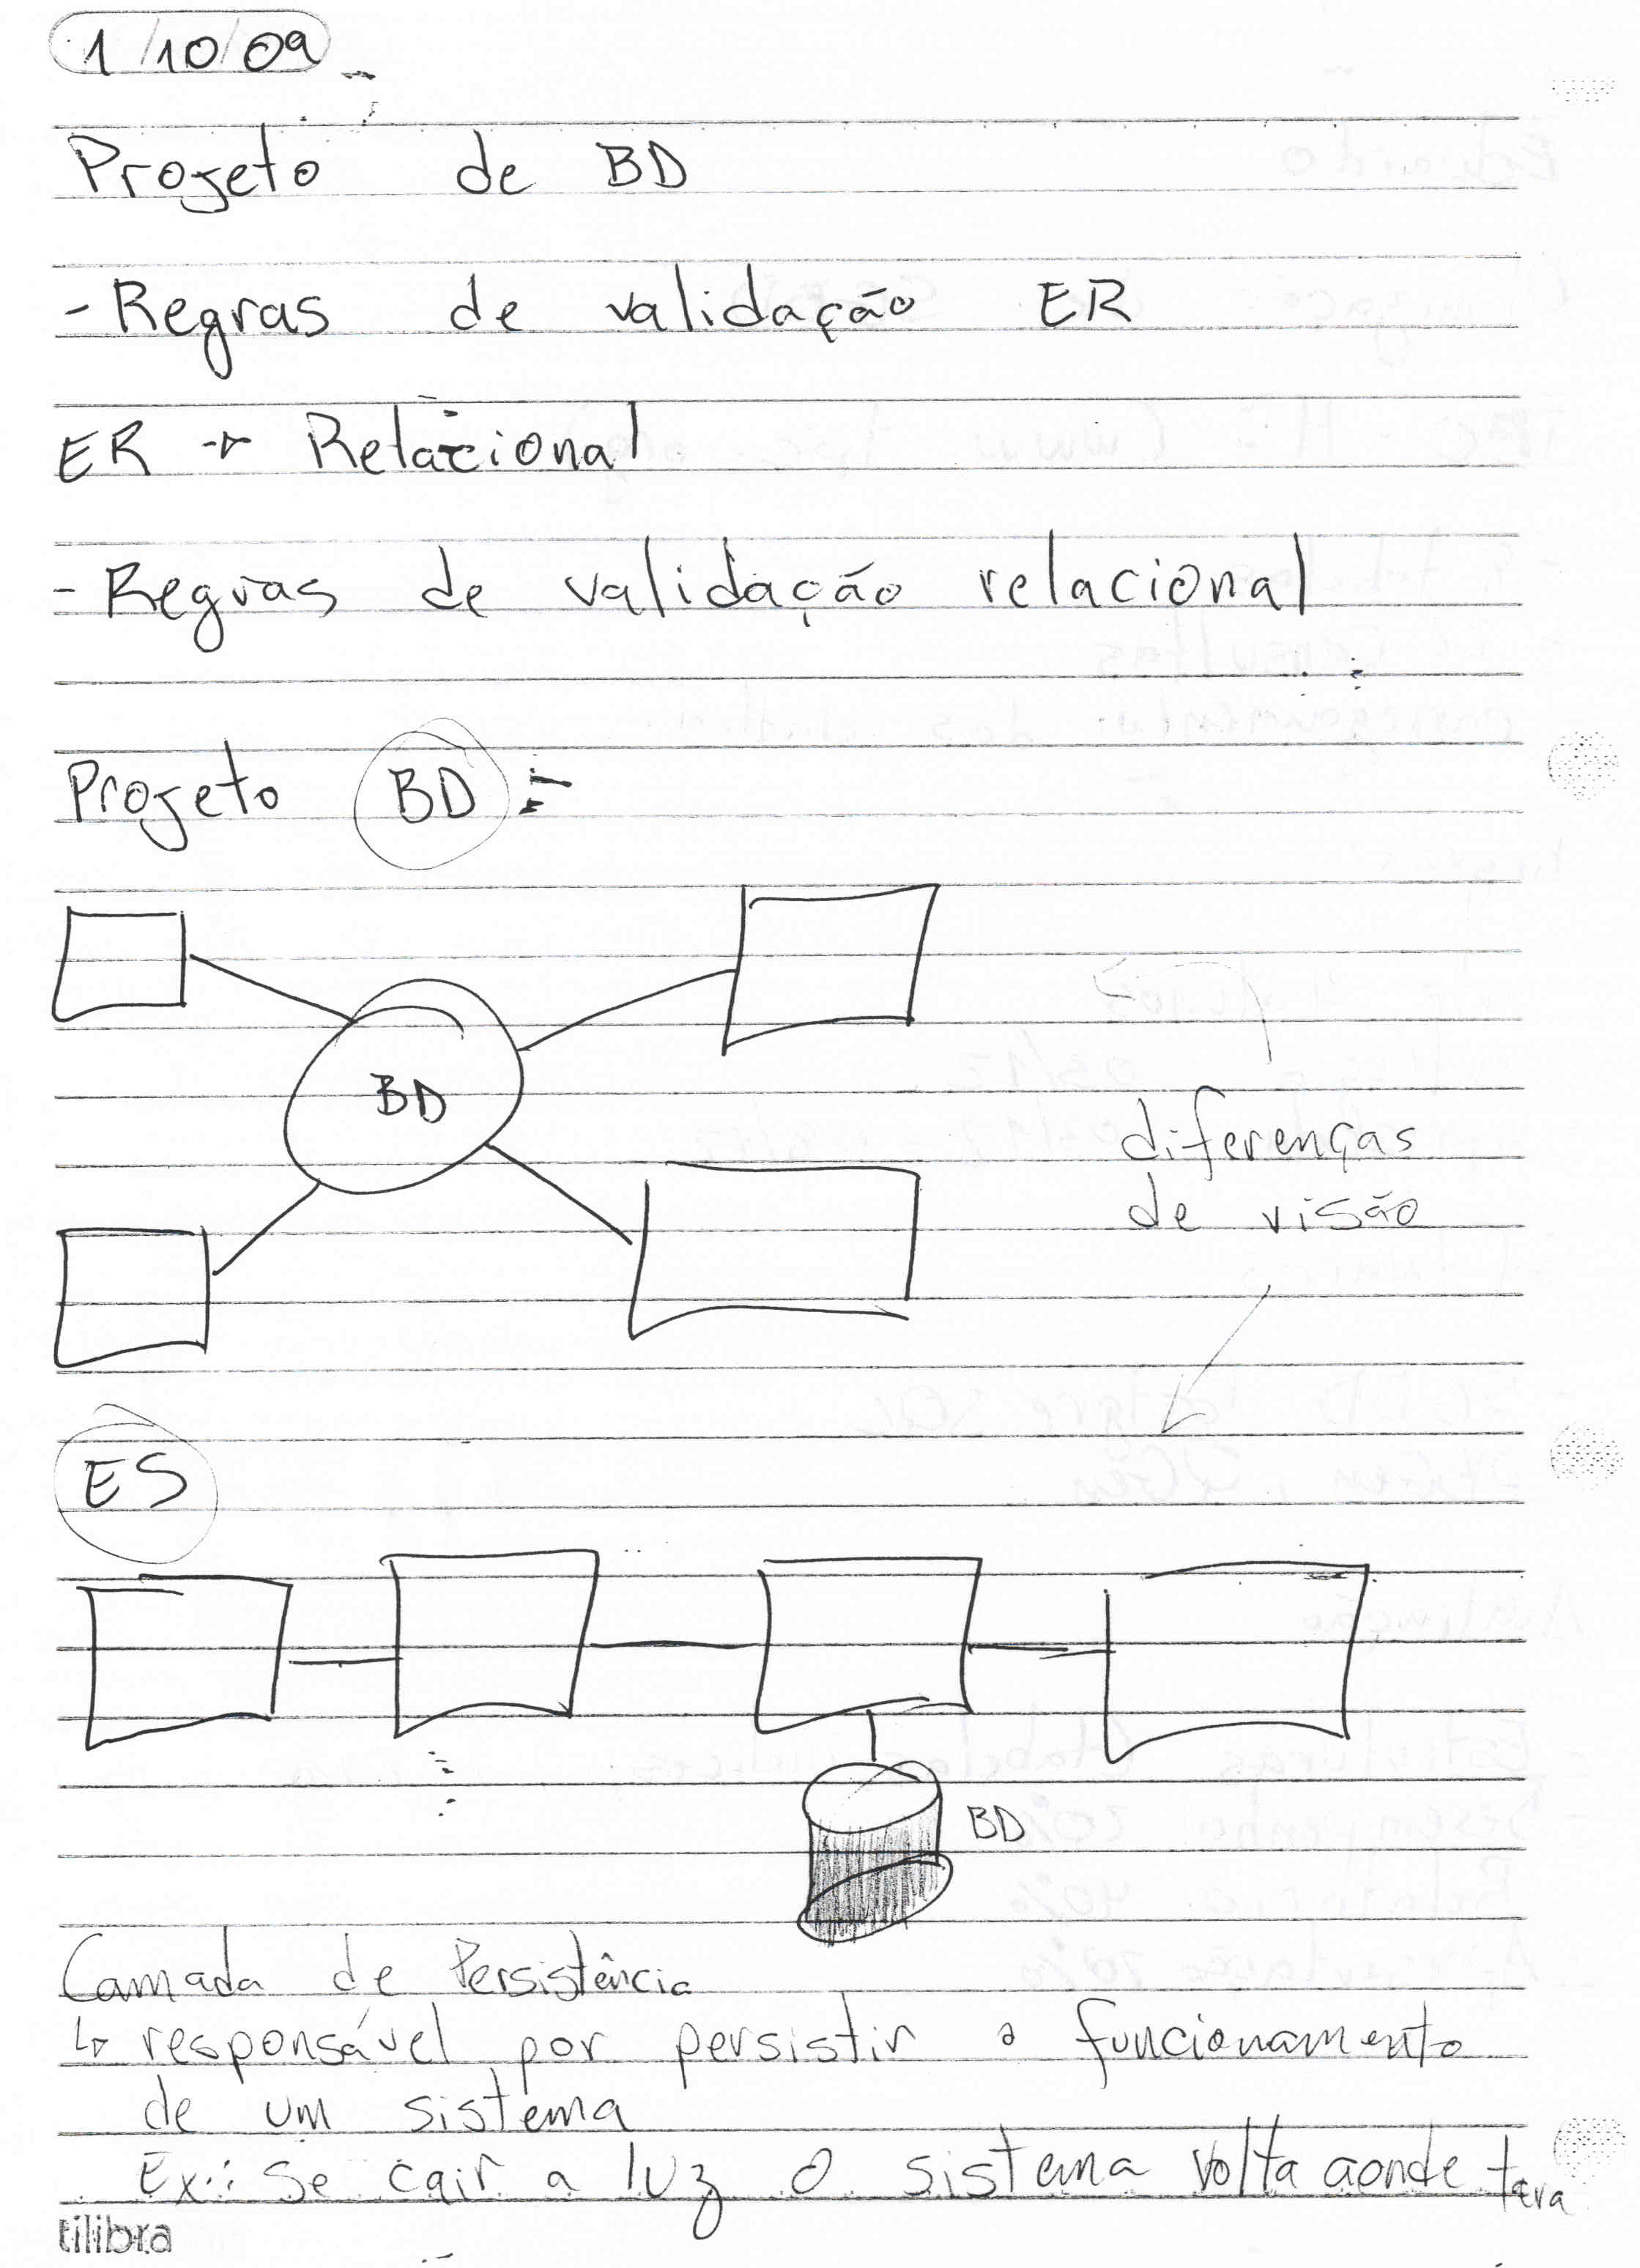 1/10/09
Projeto de BD
- Regras de validação ER
ER → Relacional
- Regras de validação relacional
Projeto BD :
BD
diferenças
de visão
ES
BD
Camada de Persistência
↳ responsável por persistir o funcionamento
de um sistema
Ex.: Se cair a luz o sistema volta aonde tava
tilibra